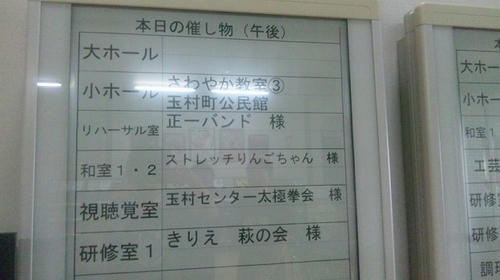 本日の催し物（午後）
大ホール
小ホール さわやか教室③
玉村町公民館
リハーサル室 正一バンド 様
和室１・２ ストレッチりんごちゃん 様
視聴覚室 玉村センター太極拳会 様
研修室１ きりえ 萩の会 様
本
大ホー
小ホー
和室１
工芸
研修
研修